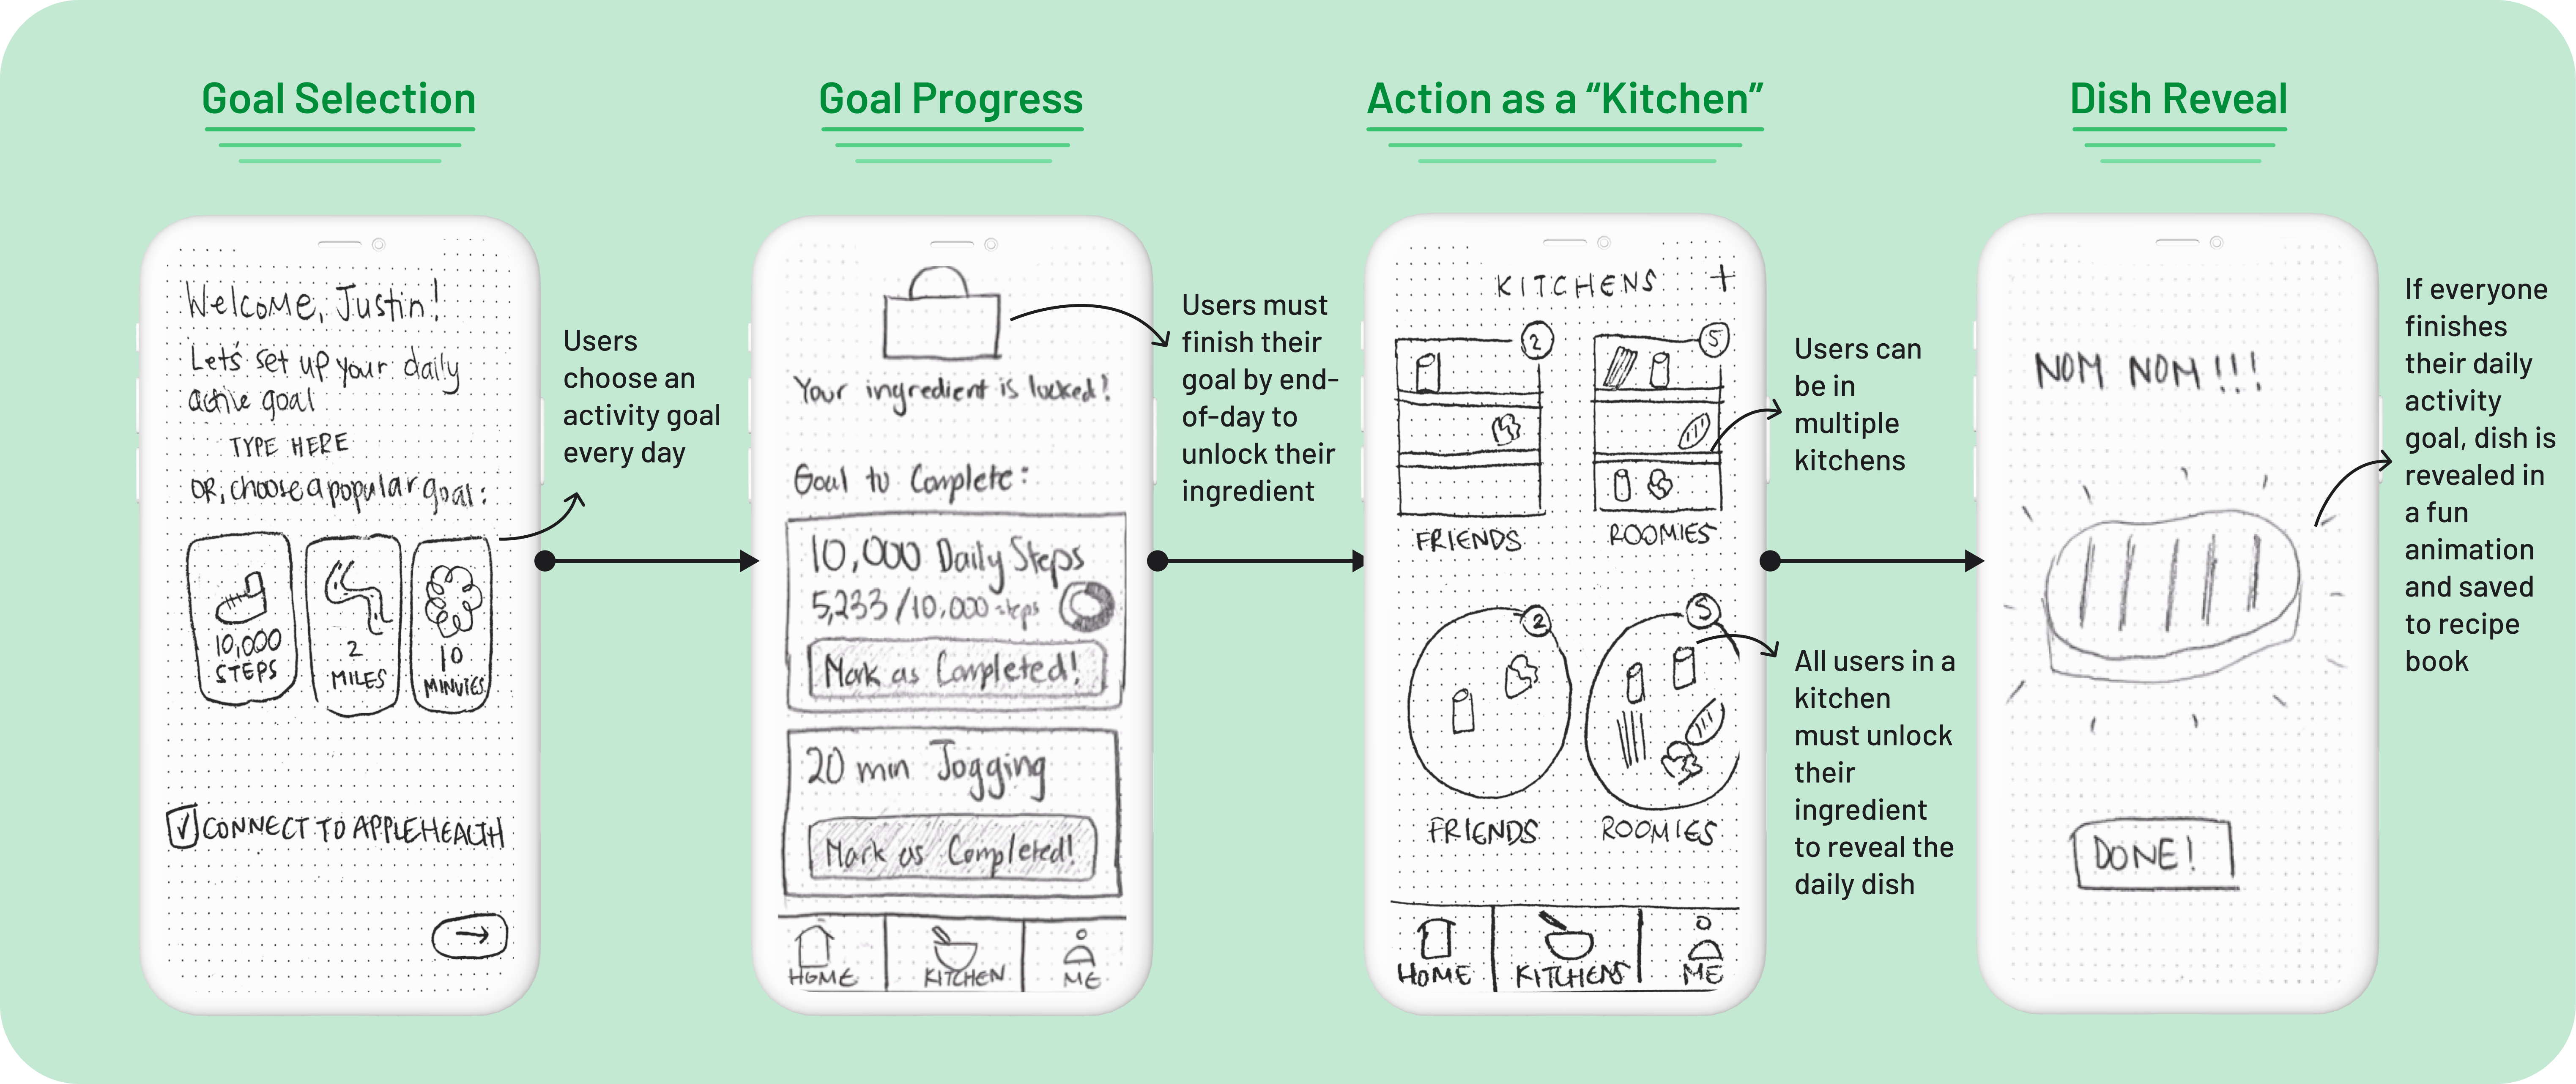 Goal Selection
Welcome, Justin!
Let's set up your daily
active goal
TYPE HERE
OR, choose a popular goal:
10,000
STEPS
2
MILES
10
MINUTES
CONNECT TO APPLE HEALTH
→
Users
choose an
activity goal
every day
Goal Progress
Your ingredient is locked!
Goal to Complete:
10,000 Daily Steps
5,233/10,000 steps
Mark as Completed!
20 min Jogging
Mark as Completed!
HOME
KITCHEN
ME
Users must
finish their
goal by end-
of-day to
unlock their
ingredient
Action as a “Kitchen”
KITCHENS +
2
5
FRIENDS
ROOMIES
2
5
FRIENDS
ROOMIES
HOME
KITCHENS
ME
Users can
be in
multiple
kitchens
All users in a
kitchen
must unlock
their
ingredient
to reveal the
daily dish
Dish Reveal
NOM NOM!!!
DONE!
If everyone
finishes
their daily
activity
goal, dish is
revealed in
a fun
animation
and saved
to recipe
book